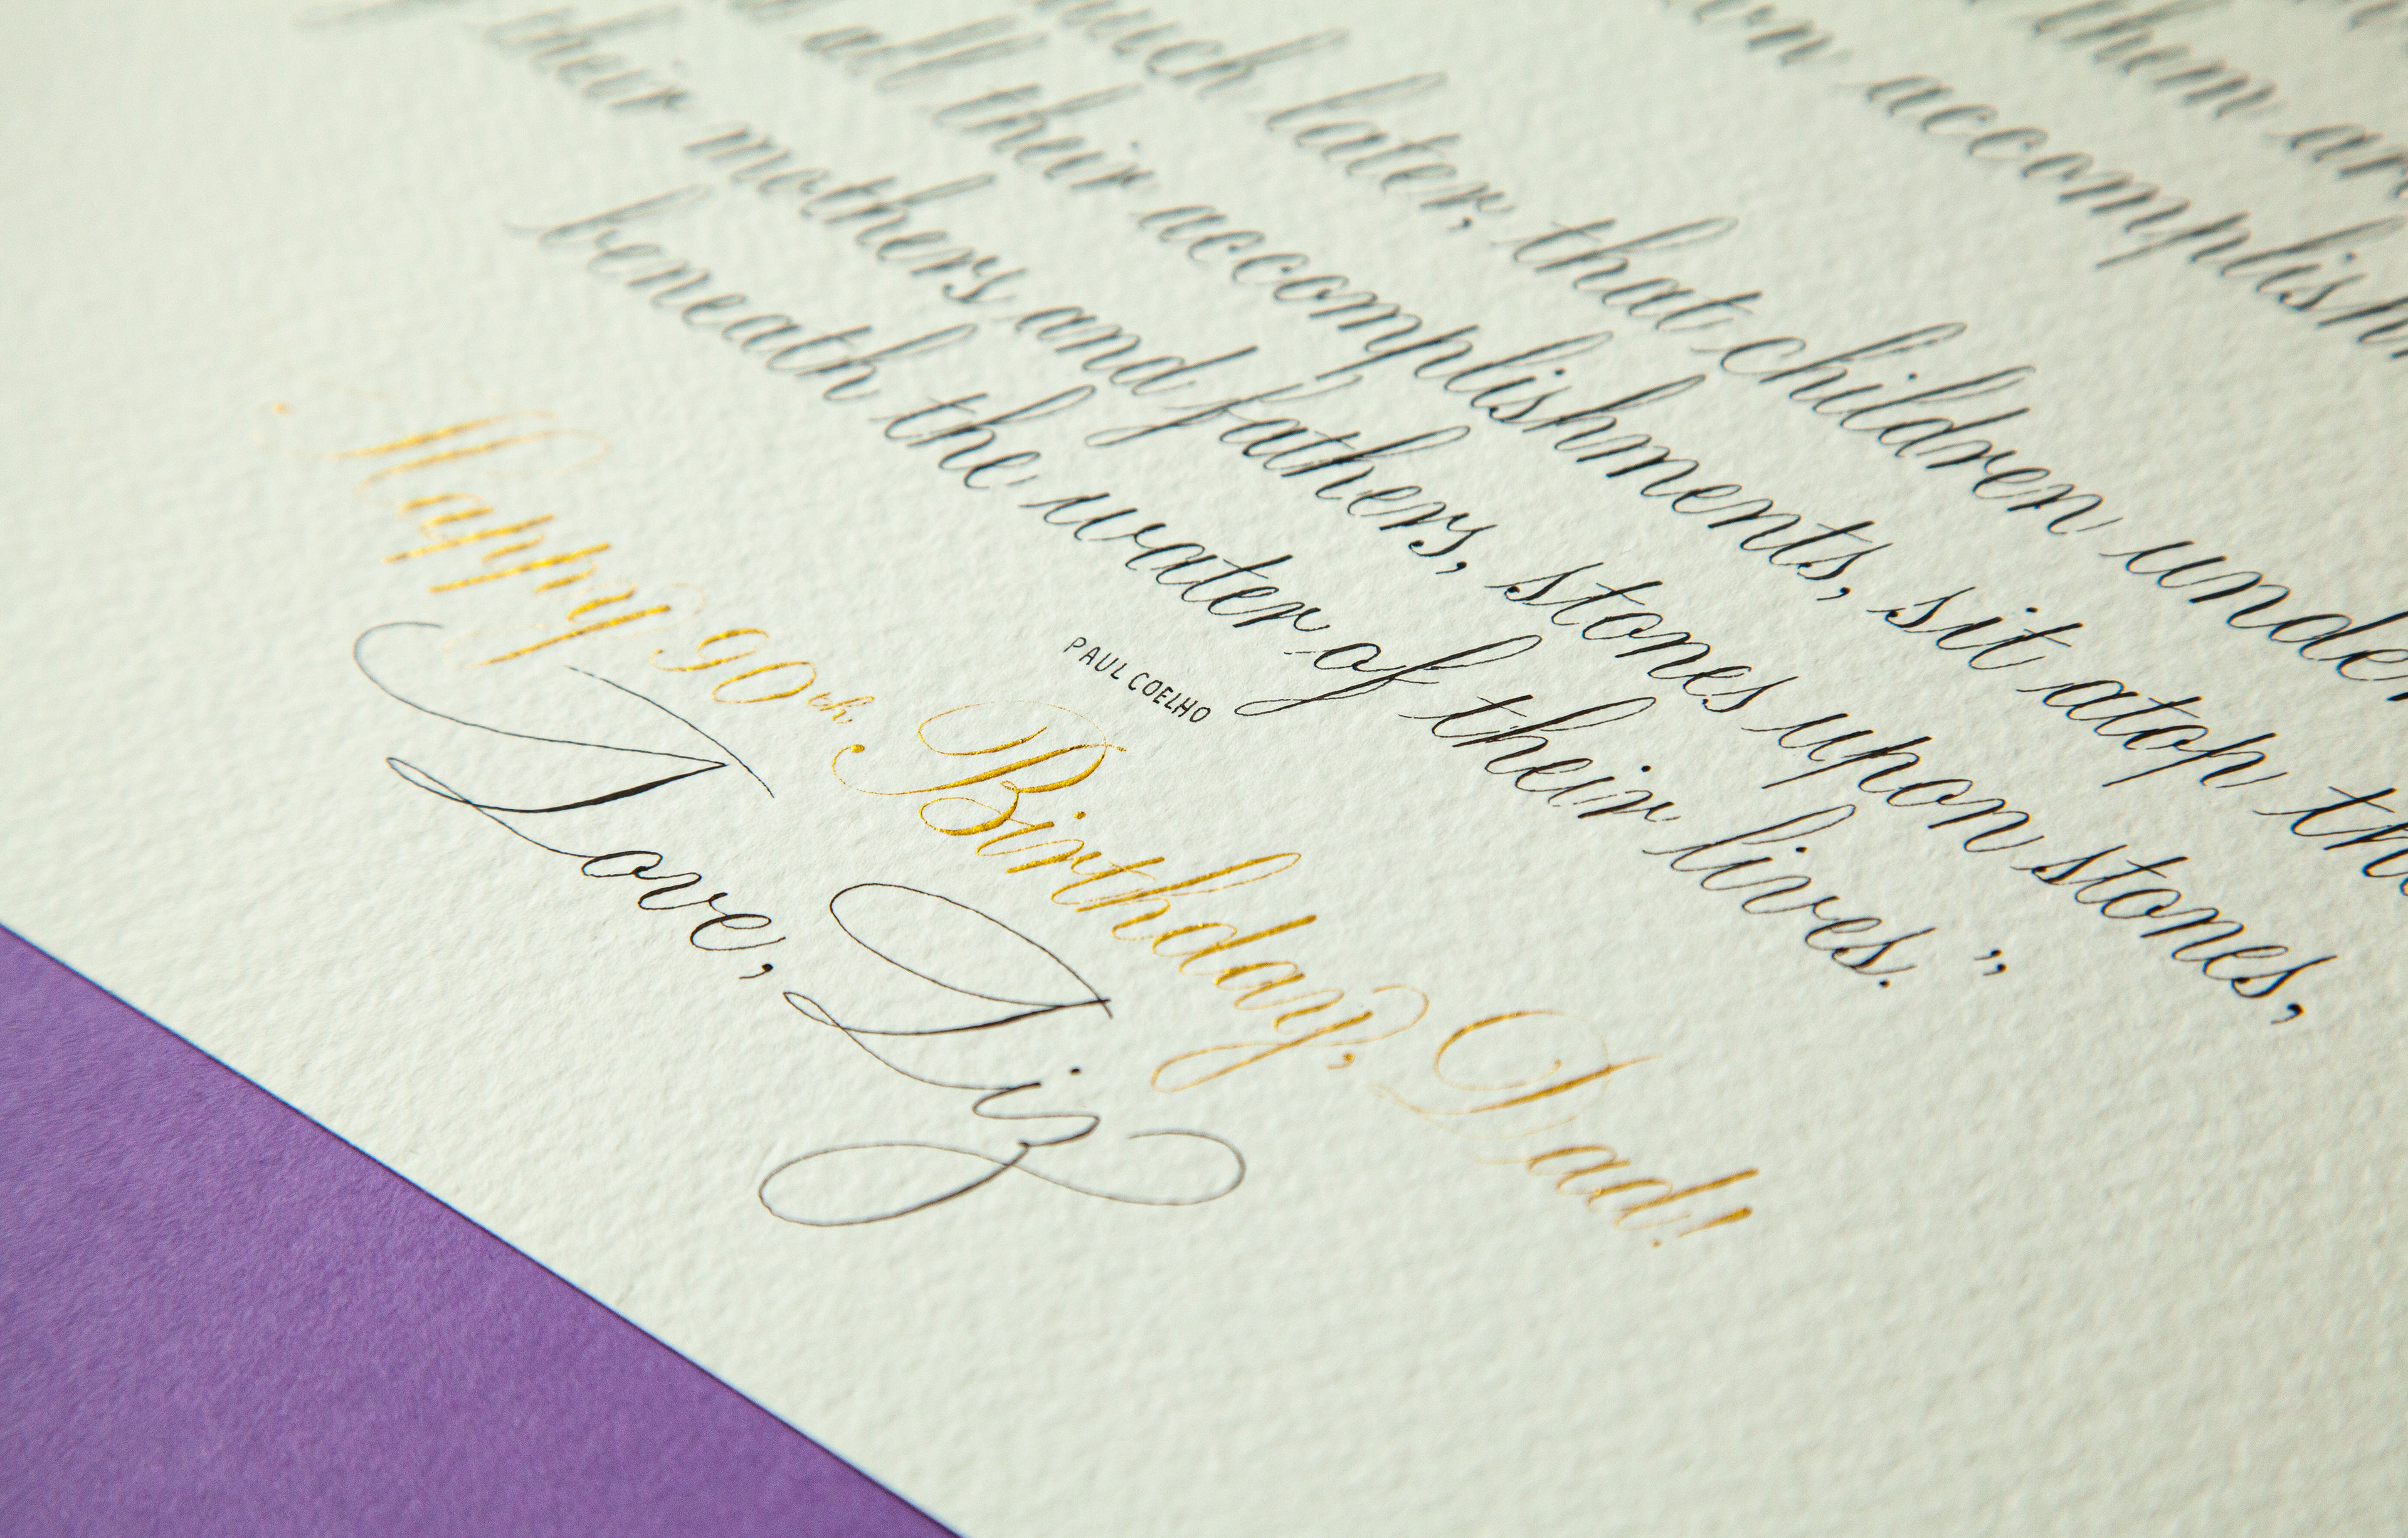 them
own accomplish
much later, that children under
all their accomplishments, sit atop the
their mothers and fathers, stones upon stones,
beneath the water of their lives.”
PAUL COELHO
Happy 90th Birthday, Dad!
Love, Liz